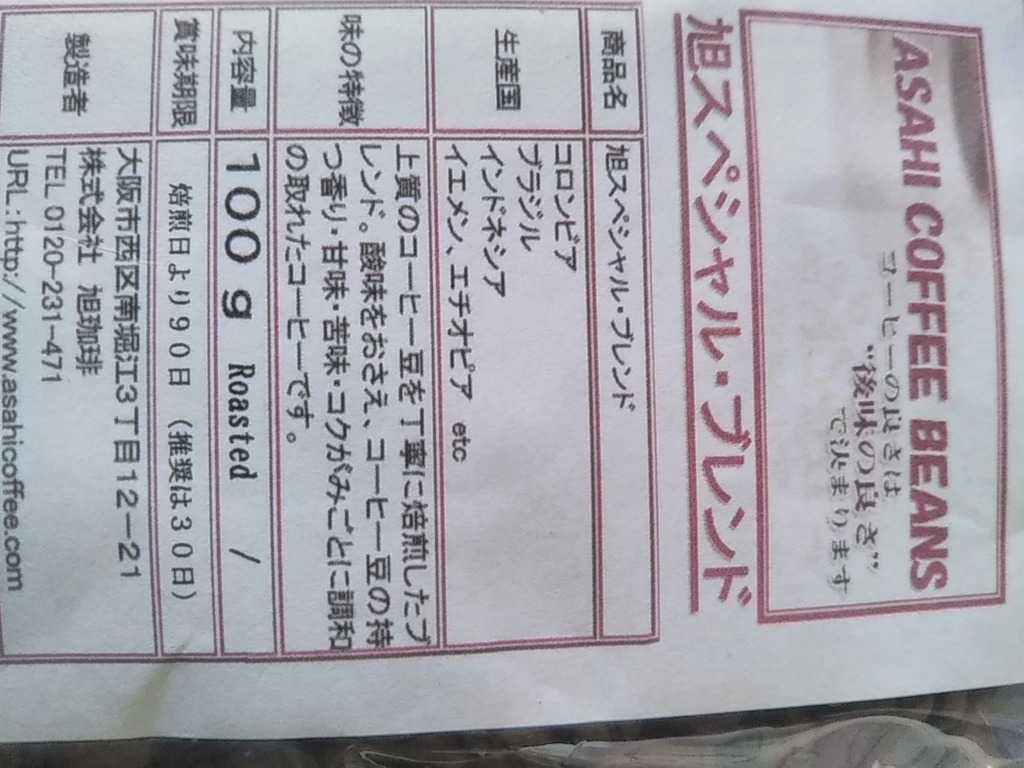 ASAHI COFFEE BEANS
コーヒーの良さは
“後味の良さ”
で決まります
旭スペシャル・ブレンド
商品名 旭スペシャル・ブレンド
生産国 コロンビア
ブラジル
インドネシア
イエメン、エチオピア etc
味の特徴 上質のコーヒー豆を丁寧に焙煎したブ
レンド。酸味をおさえ、コーヒー豆の持
つ香り・甘味・苦味・コクがみごとに調和
の取れたコーヒーです。
内容量 100g Roasted /
賞味期限 焙煎日より90日 (推奨は30日)
製造者 大阪市西区南堀江3丁目12-21
株式会社 旭珈琲
TEL 0120-231-471
URL:http://www.asahicoffee.com